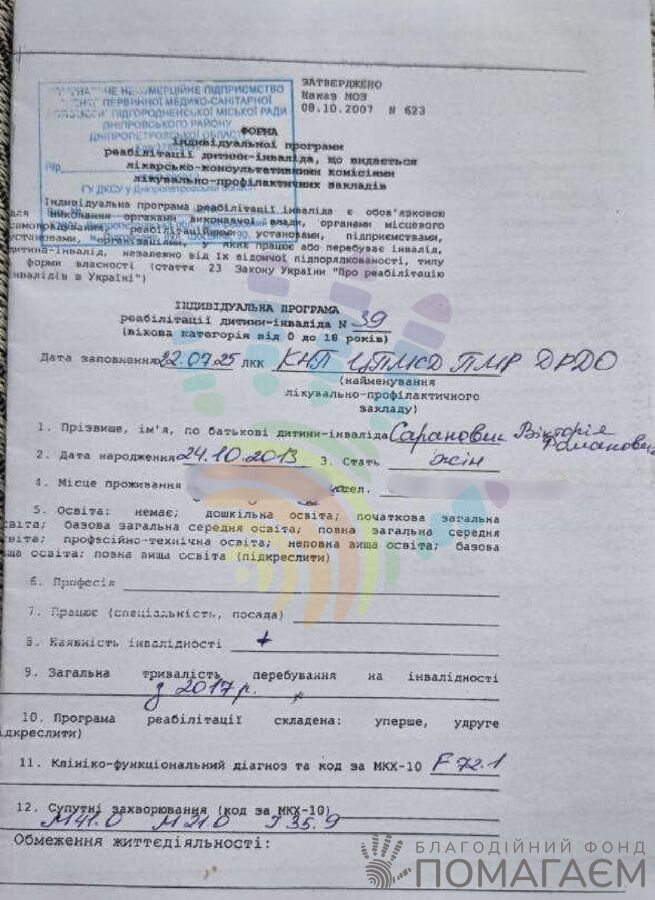 ЗАТВЕРДЖЕНО
Наказ МОЗ
08.10.2007 N 623
НЕКОМЕРЦІЙНЕ ПІДПРИЄМСТВО
ПЕРВИННОЇ МЕДИКО-САНІТАРНОЇ
ПІДГОРОДНЕНСЬКОЇ МІСЬКОЇ РАДИ
ДНІПРОВСЬКОГО РАЙОНУ
ДНІПРОПЕТРОВСЬКОЇ ОБЛАСТІ
ГУ ДКСУ у Дніпропетровській області
ФОРМА
індивідуальної програми
реабілітації дитини-інваліда, що видається
лікарсько-консультативними комісіями
лікувально-профілактичних закладів
Індивідуальна програма реабілітації інваліда є обов'язковою
для виконання органами виконавчої влади, органами місцевого
самоврядування, реабілітаційними установами, підприємствами,
установами, організаціями, у яких працює або перебуває інвалід,
дитина-інвалід, незалежно від їх відомчої підпорядкованості, типу
форми власності (стаття 23 Закону України "Про реабілітацію
інвалідів в Україні")
ІНДИВІДУАЛЬНА ПРОГРАМА
реабілітації дитини-інваліда N 39
(вікова категорія від 0 до 18 років)
Дата заповнення 22.07.25 ЛКК КНП ЦПМСД ПМР ДРДО
(найменування
лікувально-профілактичного
закладу)
1. Прізвище, ім'я, по батькові дитини-інваліда Саранович Вікторія
Романовна
2. Дата народження 24.10.2013 3. Стать жін
4. Місце проживання тел.
5. Освіта: немає; дошкільна освіта; початкова загальна
світа; базова загальна середня освіта; повна загальна середня
світа; професійно-технічна освіта; неповна вища освіта; базова
ща освіта; повна вища освіта (підкреслити)
6. Професія
7. Працює (спеціальність, посада)
8. Наявність інвалідності +
9. Загальна тривалість перебування на інвалідності
з 2017 р.
10. Програма реабілітації складена: уперше, удруге
ідкреслити)
11. Клініко-функціональний діагноз та код за МКХ-10 F 72.1
12. Супутні захворювання (код за МКХ-10)
М41.0 М21.0 J 35.9
Обмеження життєдіяльності:
БЛАГОДІЙНИЙ ФОНД
ПОМАГАЄМ